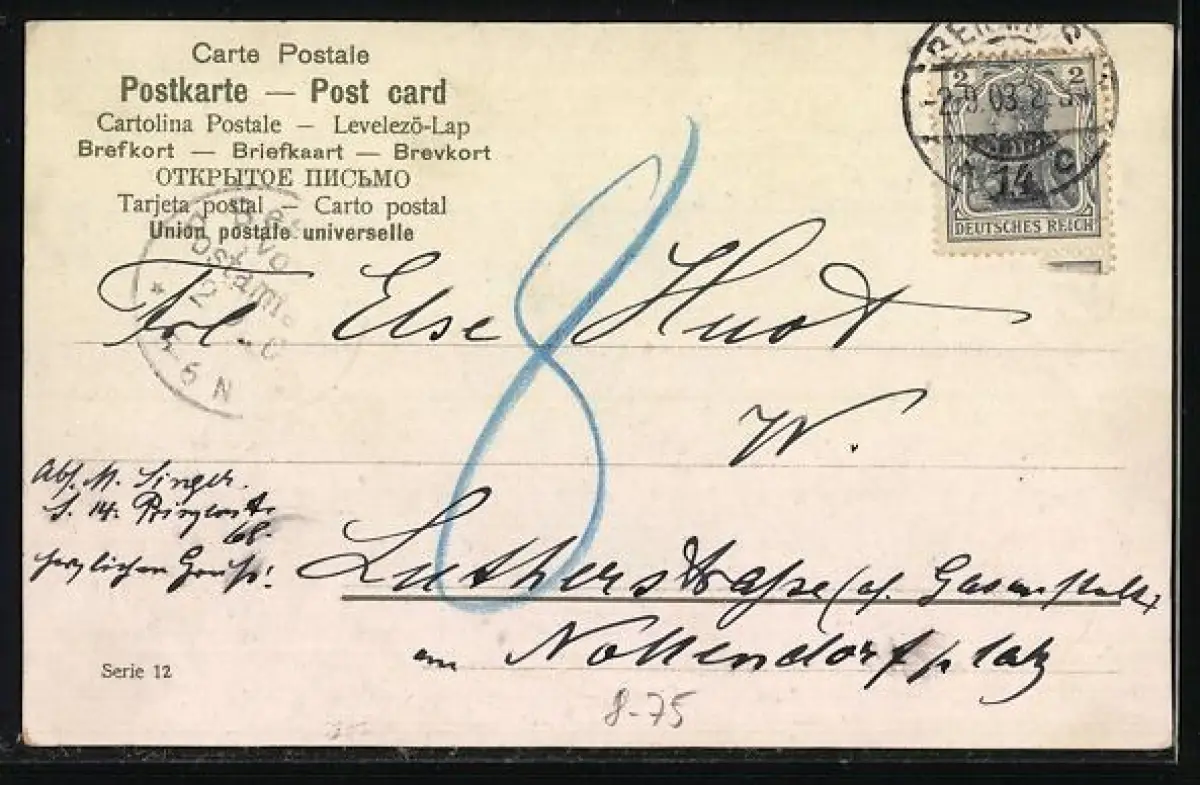 Carte Postale
Postkarte — Post card
Cartolina Postale — Levelező-Lap
Brefkort — Briefkaart — Brevkort
ОТКРЫТОЕ ПИСЬМО
Tarjeta postal — Carto postal
Union postale universelle
2 2
2.9.03.
14 C
DEUTSCHES REICH
Postamt
5 N
8
Frl. Else Huot
W.
Abs. M. Singer.
S. 14.
68.
herzlichen Gruß!
Lutherstraße
am Nollendorfplatz
Serie 12
8-75